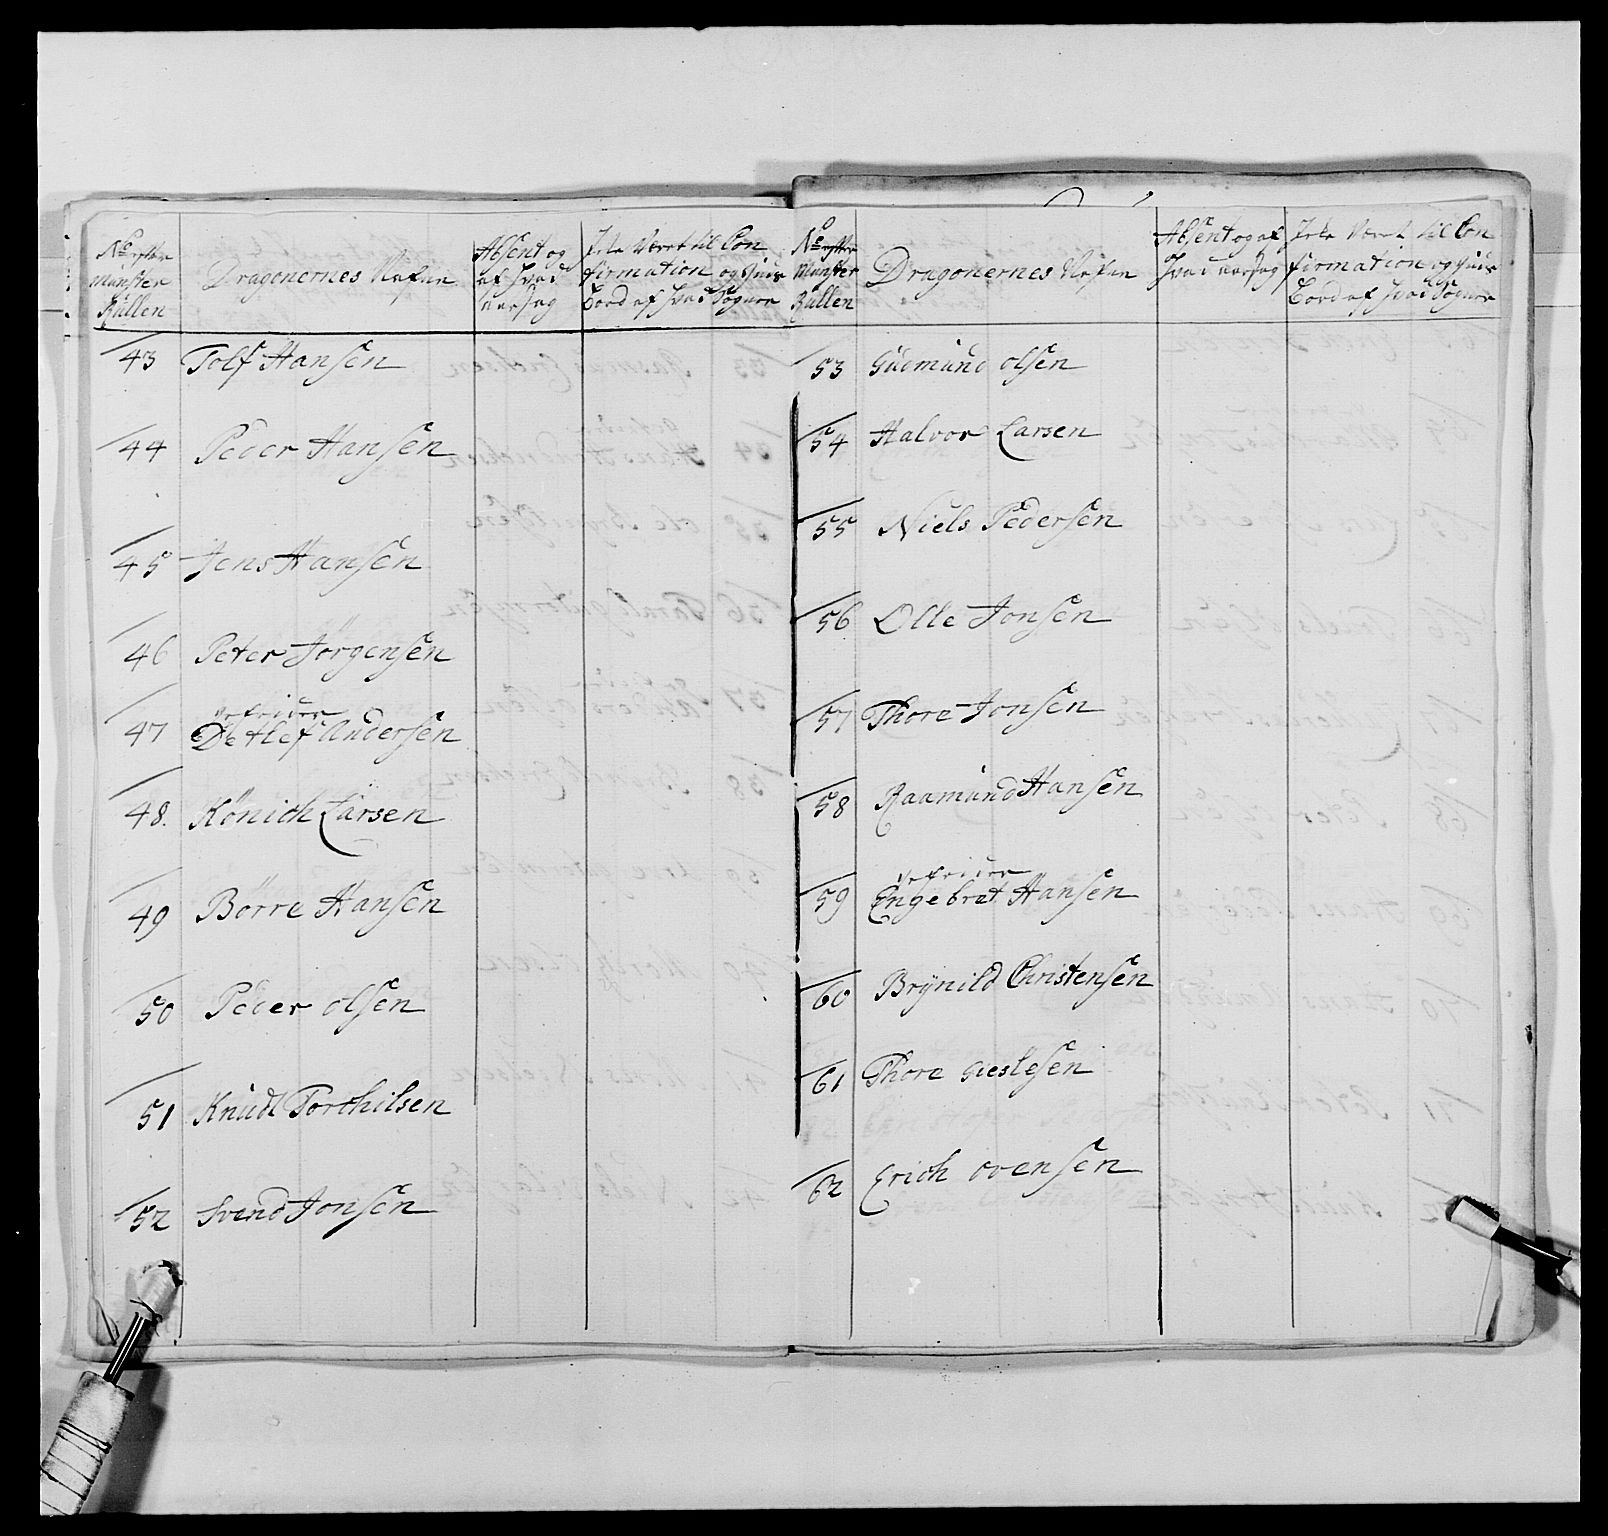 No efter
Münster
Rüllen
Dragonernes Nafne
Absent og
af hvad
aarsag
Icke Veret til Con
firmation og Guds
Bord af hvad Sogner
43 Tolf Hansen
44 Peder Hansen
45 Jens Hansen
46 Peter Jörgensen
gefrider
47 Detlef Andersen
48. Könich Larsen
49 Börre Hansen
50 Peder olsen
51 Knüdt Torchilsen
52 Svend Jonsen
No efter
Münster
Rullen
Dragonernes Nafne
Absent og af
hvad aarsag
Icke Veret til Con
firmation og Guds
Bord af hvad Sogner
53 Güdmünd olsen
54 Halvor Larsen
55 Niels Pedersen
56 Olle Jonsen
57 Thore Jonsen
58 Raamünd Hansen
gefrider
59 Engebret Hansen
60 Brÿnild Christensen
61 Thore Gieslesen
62 Erich ovensen